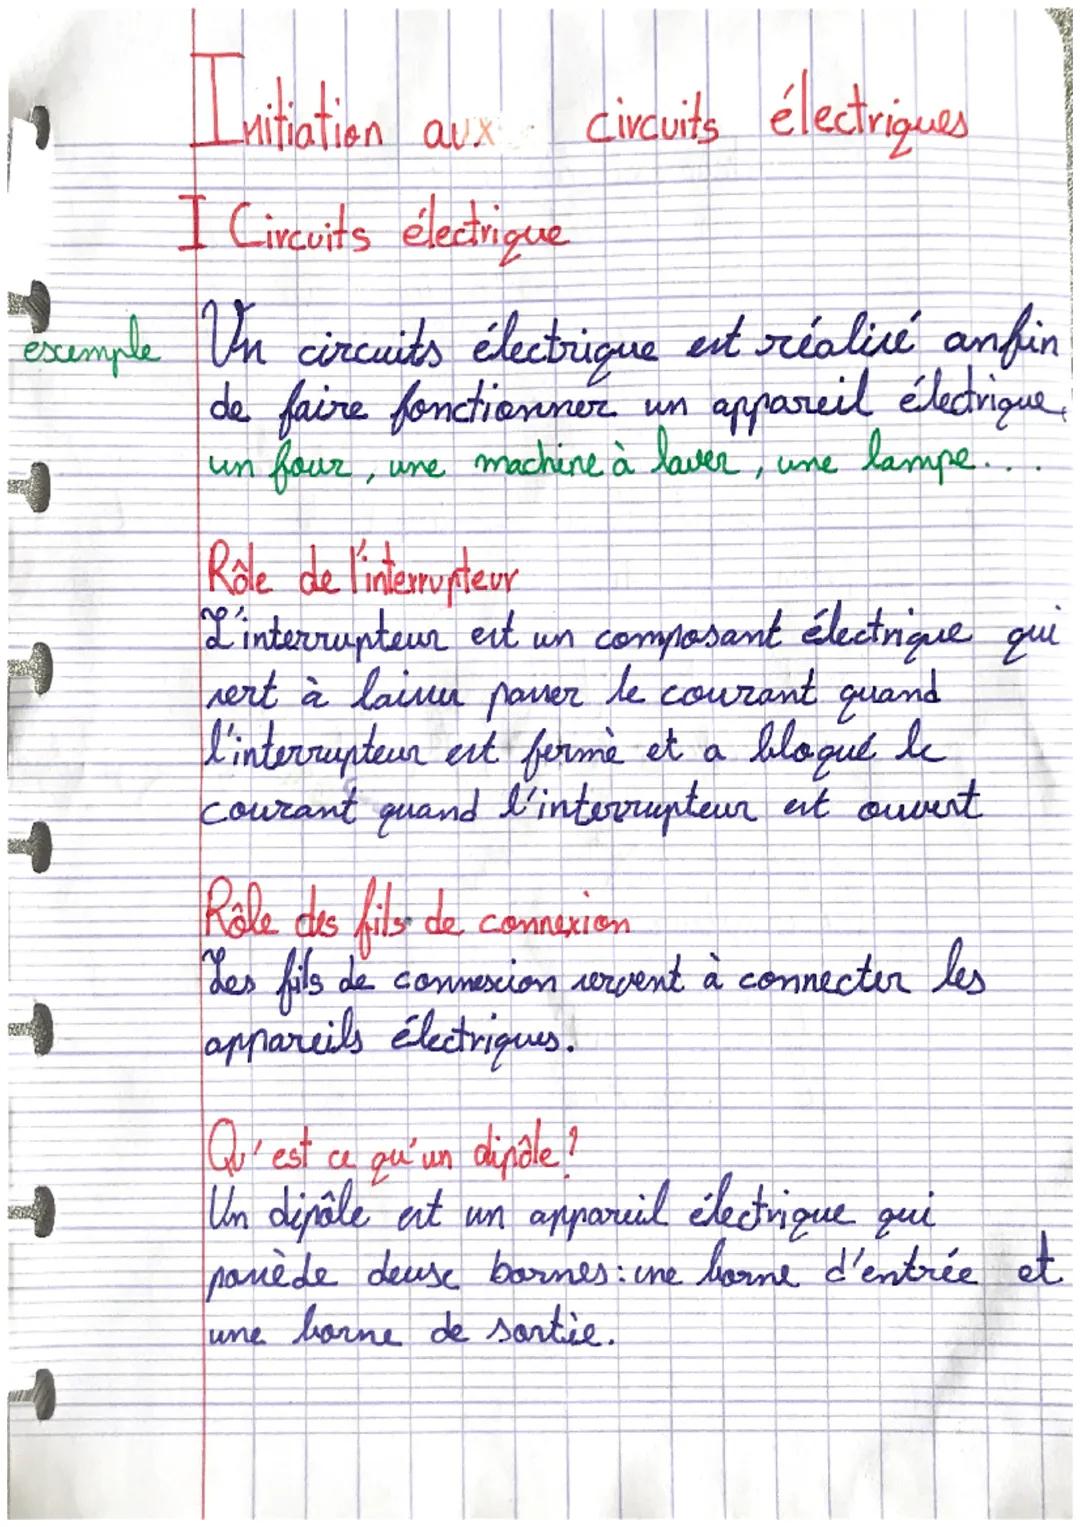 Initiation aux circuits électriques
I Circuits électrique
exemple
Un circuits électrique est réalisé anfin
de faire fonctionner un appareil électrique,
un four, une machine à laver, une lampe...
Rôle de l'interrupteur
L'interrupteur est un composant électrique qui
sert à laisser passer le courant quand
l'interrupteur est fermè et a bloqué le
courant quand l'interrupteur est ouvert
Rôle des fils de connexion
Les fils de connexion servent à connecter les
appareils électriques.
Qu'est ce qu'un dipôle?
Un dipôle est un appareil électrique qui
possède deux bornes: une borne d'entrée et
une borne de sortie.